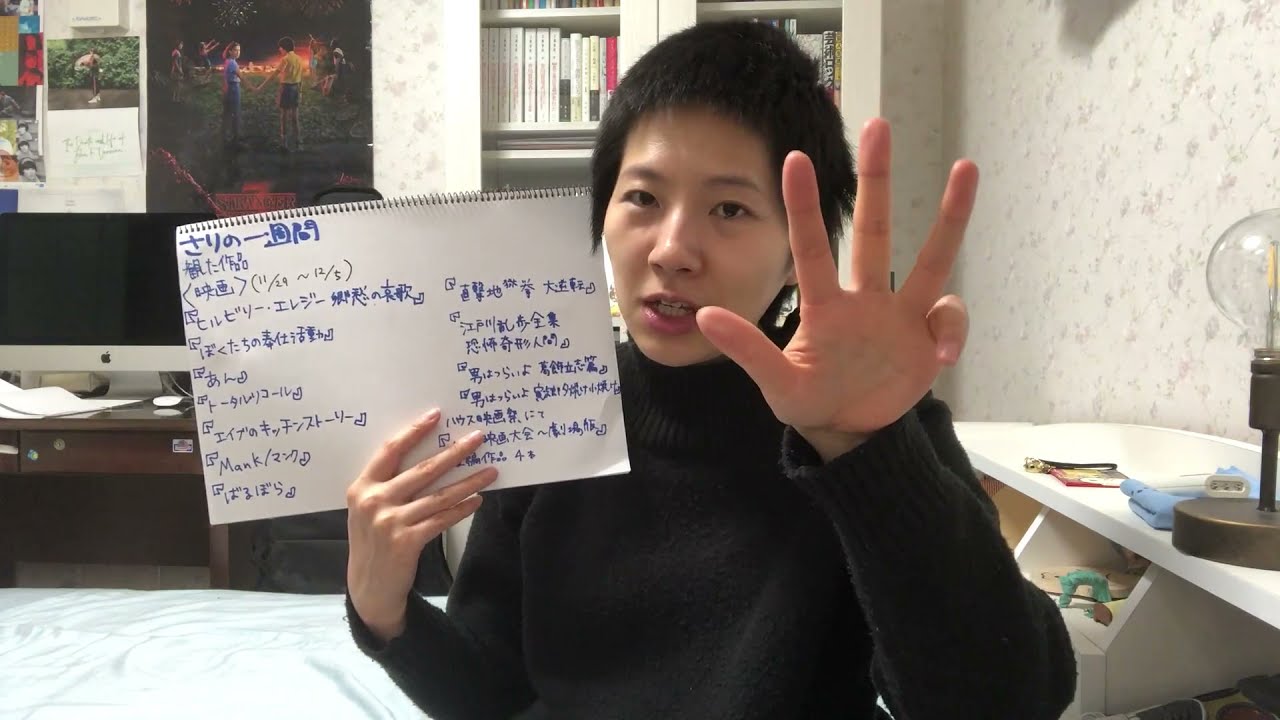 さりの一週間
観た作品
<映画> (11/29 ~ 12/5)
『ヒルビリー・エレジー 郷愁の哀歌』
『ぼくたちの奉仕活動』
『あん』
『トータルリコール』
『エイブのキッチンストーリー』
『Mank/マンク』
『ばるぼら』
『直撃地獄拳 大逆転』
『江戸川乱歩全集
恐怖奇形人間』
『男はつらいよ 葛飾立志篇』
『男はつらいよ 寅次郎夕焼け小焼け』
ハウス映画祭 にて
映画大会~劇場版』
編作品 4本